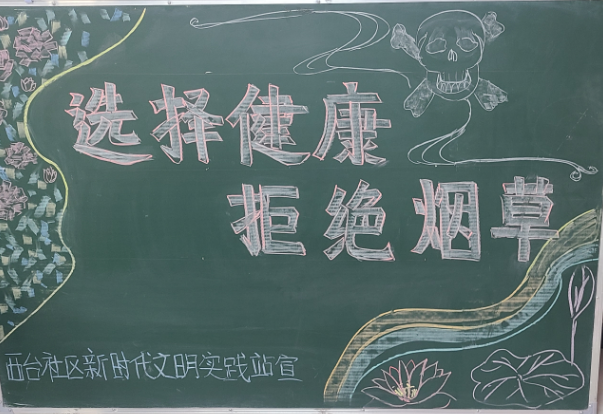 选择健康
拒绝烟草
西台社区新时代文明实践站宣